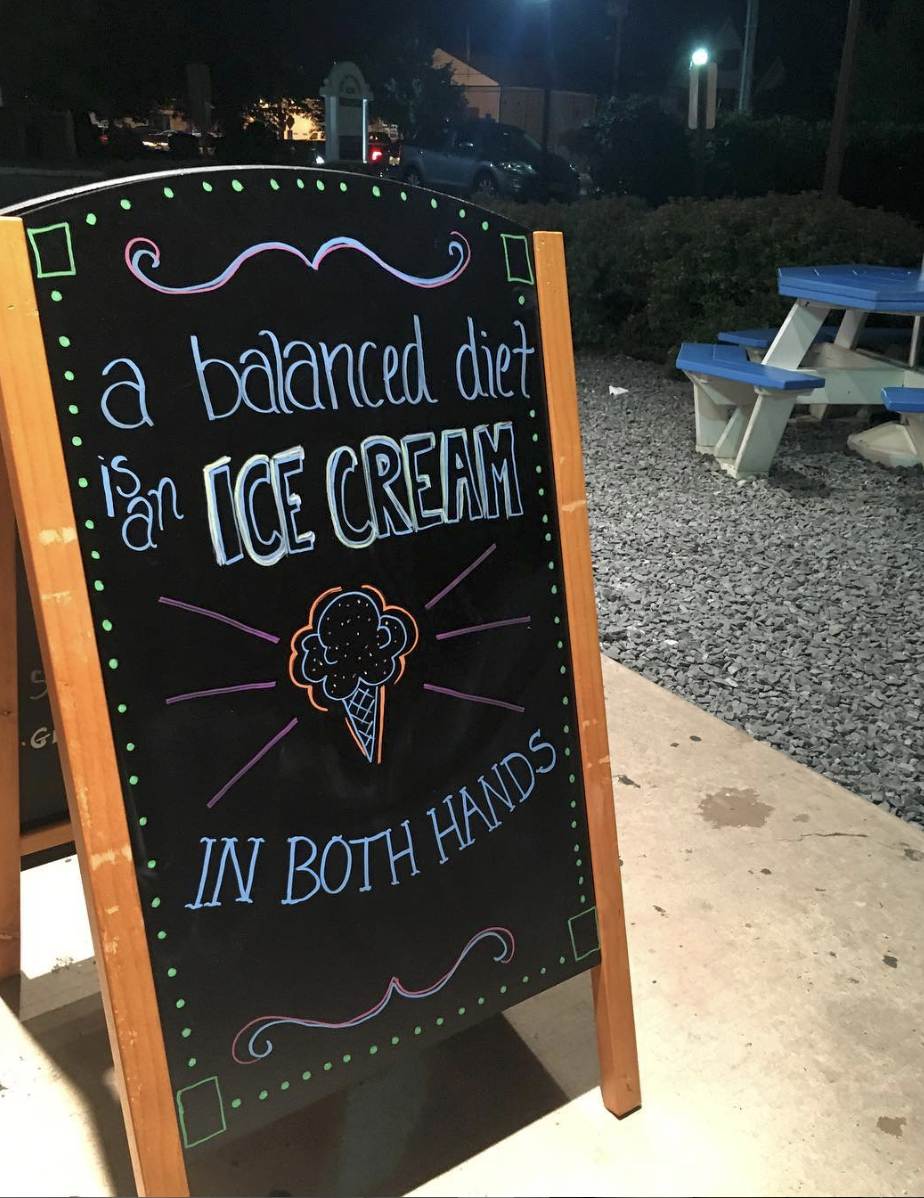 a balanced diet
is an ICE CREAM
IN BOTH HANDS